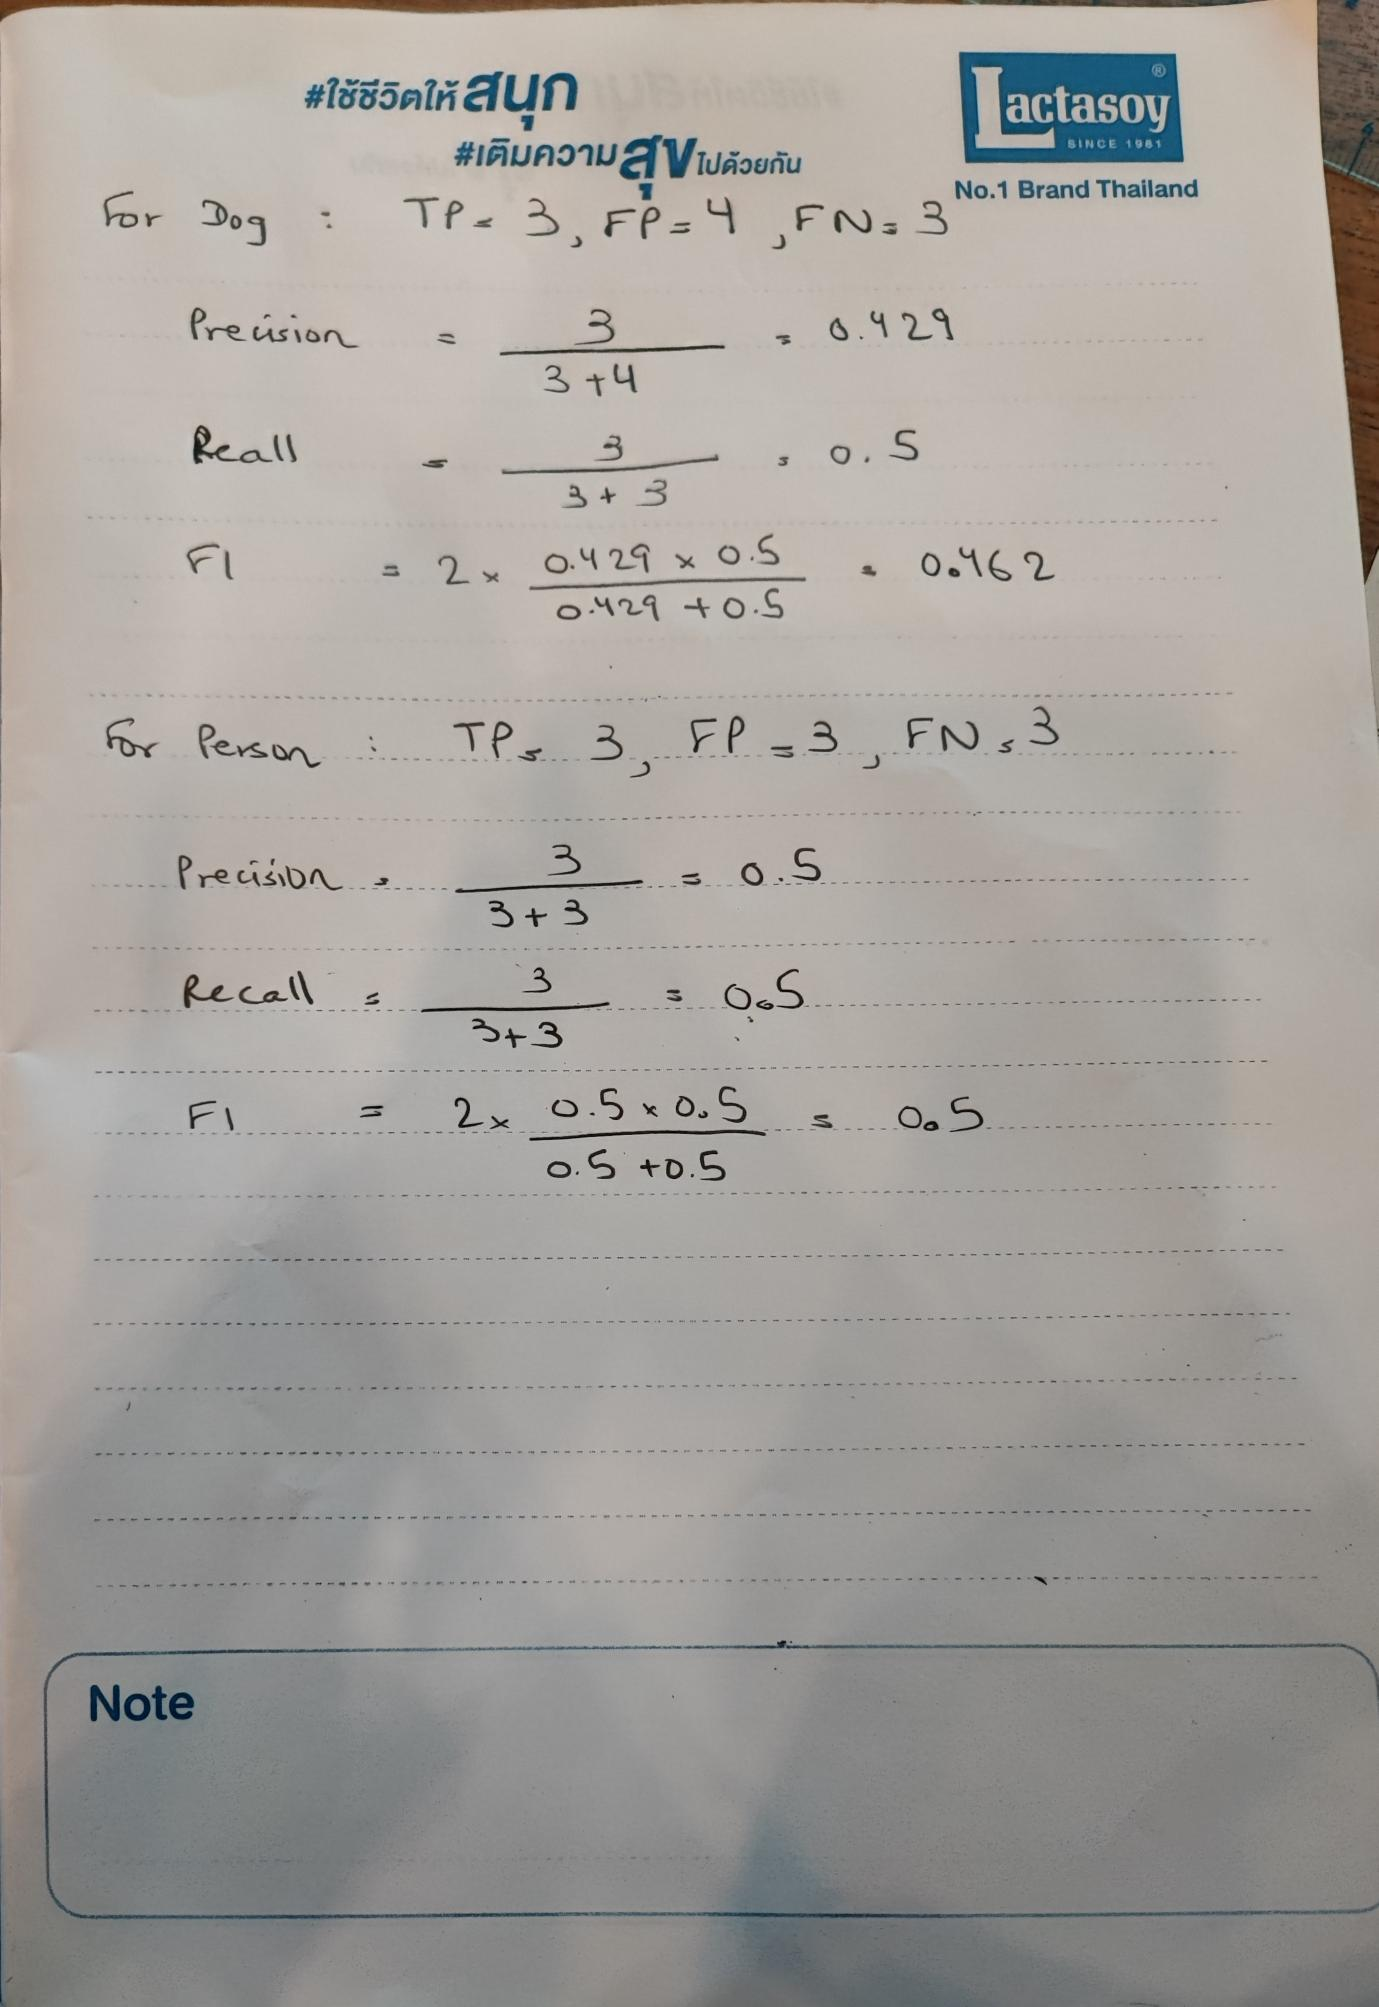 #ใช้ชีวิตให้สนุก
#เติมความสุขไปด้วยกัน
Lactasoy ®
SINCE 1981
No.1 Brand Thailand
For Dog : TP = 3, FP = 4, FN = 3
Precision = 3 / 3 + 4 = 0.429
Recall = 3 / 3 + 3 = 0.5
F1 = 2 × 0.429 × 0.5 / 0.429 + 0.5 = 0.462
For Person : TP = 3, FP = 3, FN = 3
Precision = 3 / 3 + 3 = 0.5
Recall = 3 / 3 + 3 = 0.5
F1 = 2 × 0.5 × 0.5 / 0.5 + 0.5 = 0.5
Note